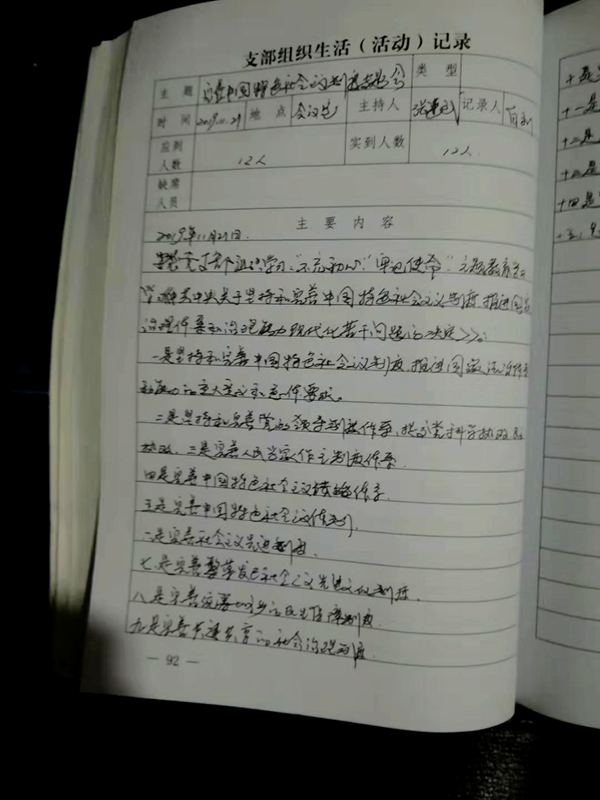 支部组织生活（活动）记录
主题 完善中国特色社会主义制度 类型
时间 2019.11.21 地点 会议室 主持人 记录人
应到人数 12人 实到人数 12人
缺席人员
主要内容
2019年11月21日
支部组织学习“不忘初心”“牢记使命”主题教育
中共中央关于坚持和完善中国特色社会主义制度，推进国家
治理体系和治理能力现代化若干问题的决定>>。
一是坚持和完善中国特色社会主义制度，推进国家治理体系
和能力的重大意义和总体要求。
二是坚持和完善党的领导制度体系，提高党科学执政
执政。三是完善人民当家作主制度体系
四是完善中国特色社会主义体系
五是完善中国特色社会主义体制
六是完善社会主义制度
七是完善繁荣发展社会主义先进文化制度
八是完善统筹城乡的民生保障制度
九是完善共建共享的社会治理制度
— 92 —
十是
十一是
十二是
十三是
十四是